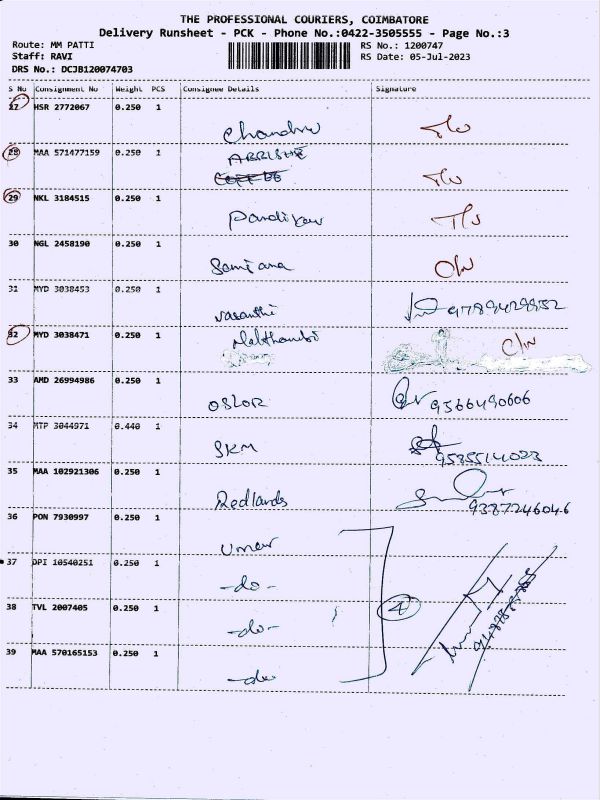 THE PROFESSIONAL COURIERS, COIMBATORE
Delivery Runsheet - PCK - Phone No.:0422-3505555 - Page No.:3
Route: MM PATTI RS No.: 1200747
Staff: RAVI RS Date: 05-Jul-2023
DRS No.: DCJB120074703
S No Consignment No Weight PCS Consignee Details Signature
27 HSR 2772067 0.250 1
Chandru
28 MAA 571477159 0.250 1
29 NKL 3184515 0.250 1
30 NGL 2458190 0.250 1
31 MYD 3038453 0.250 1
Vasanthi
32 MYD 3038471 0.250 1
33 AMD 26994986 0.250 1
OSLOR 9566490606
34 MTP 3044971 0.440 1
SKM
35 MAA 102921306 0.250 1
Redlands 9387246046
36 PON 7930997 0.250 1
Umar
37 DPI 10540251 0.250 1
-do-
38 TVL 2007405 0.250 1
-do- 4
39 MAA 570165153 0.250 1
-do-